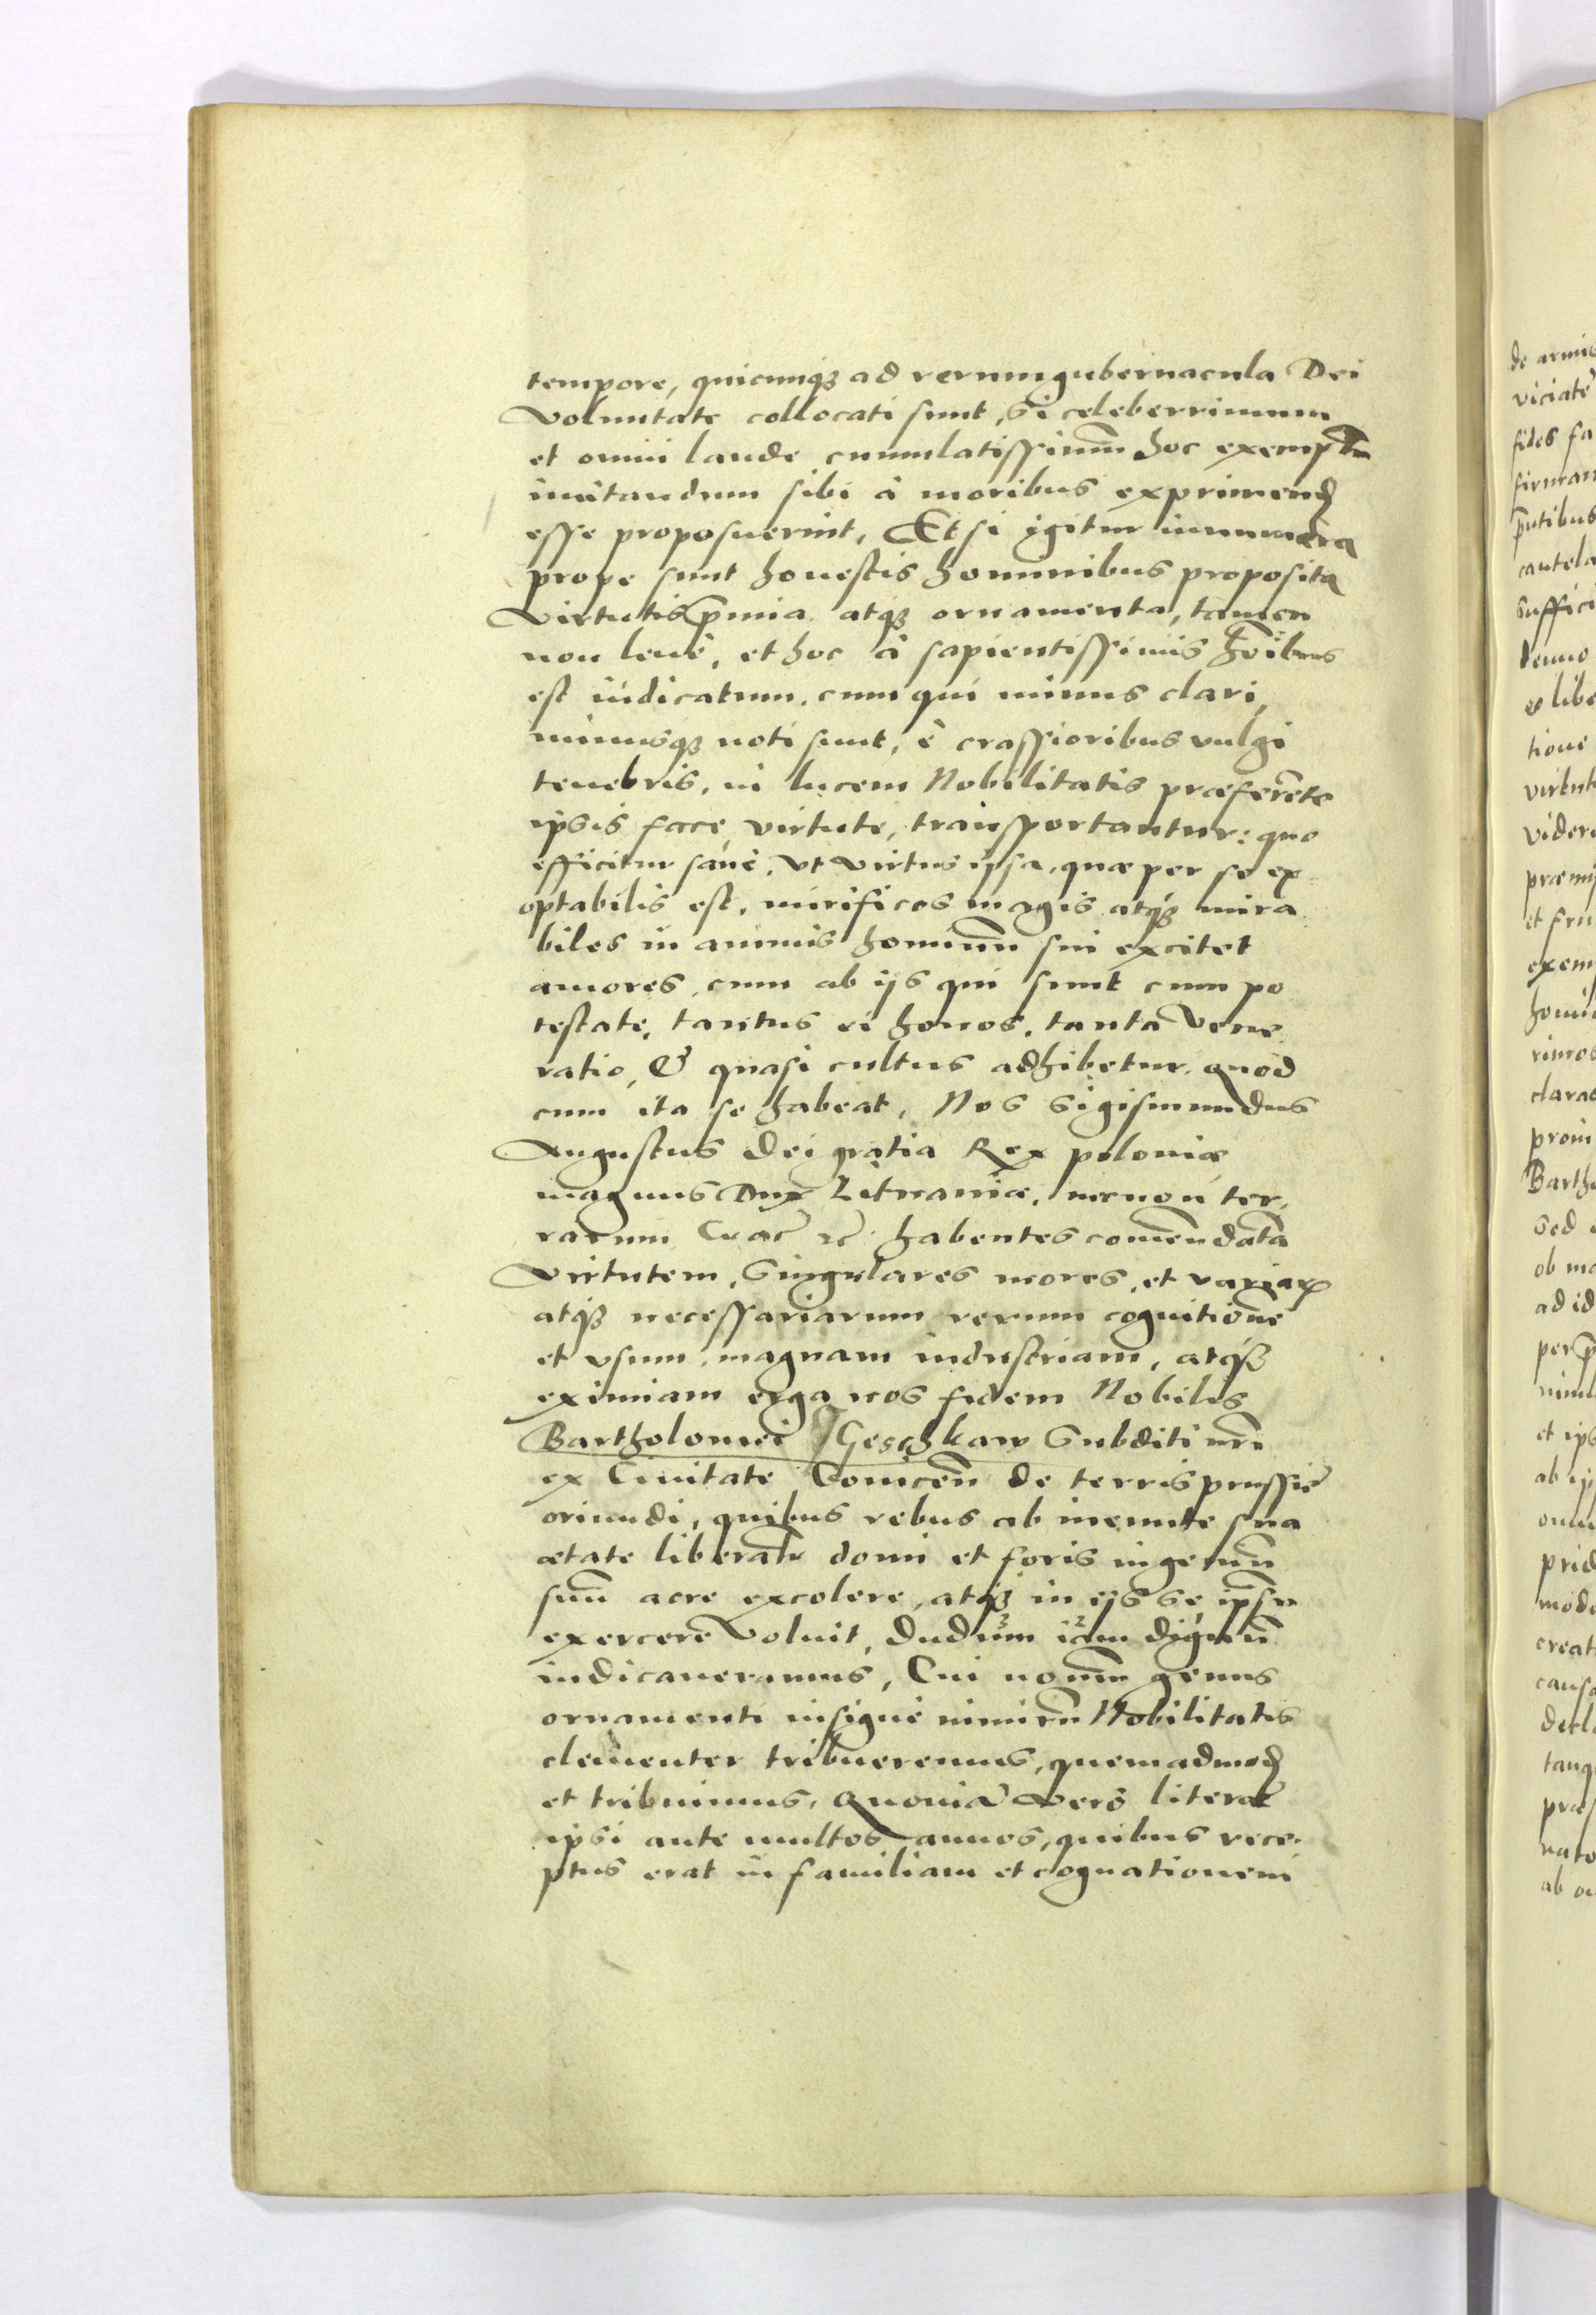 tempore, quicunqꝫ ad rerum gubernacula Dei
Voluntate collocati sunt, si celeberrimum
et omni laude cumulatissimũ hoc exemplũ
imitandum sibi à moribus exprimend
esse proposuerint. Et si igitur innumera
prope sunt honestis hominibus proposita
Virtutis p̃mia atqꝫ ornamenta, tamen
non leue, et hoc à sapientissimis hoĩbus
est iudicatum. cum qui minus clari,
minusqꝫ noti sunt, è crassioribus vulgi
tenebris, in lucem Nobilitatis præferẽte
ipsis face virtute, transportantur: quo
efficitur sanè, vt virtus ipsa, quæ per se ex
optabilis est, mirificos magis atqꝫ mira
biles in animis hominũ sui excitet
amores, cum ab ijs qui sunt cum po
testate, tantus ei honos, tanta Vene
ratio, & quasi cultus adhibetur. quod
cum ita se habeat, Nos Sigismundus
Augustus Dei gratia Rex poloniæ
magnus Dux Lituaniæ, necnon ter,
rarum Crac̃ zc̃ habentes comẽndatã
Virtutem, Singulares mores, et variarꝝ
atqꝫ necessariarum rerum cognitionẽ
et vsum, magnam industriam, atqꝫ
eximiam erga nos fidem Nobilis
Bartholomei Geschkaw Subditi nr̃i
ex Ciuitate Conicen̄ de terris prussiæ
oriundi, quibus rebus ab ineunte sua
ætate liberalr̃ domi et foris ingeniũ
suũ acre excolere, atqꝫ in ijs se ipsũ
exercere Voluit, dudum iam dignũ
iudicaueramus, Cui nouũ genus
ornamenti insigne nimirũ Nobilitatis
clementer tribueremus, quemadmod
et tribuimus. Quoniã Verò literæ
ipsi ante multos annos, quibus rece.
ptus erat in familiam et cognationem
de armis
fides fa
cautela
suffici
denuo
tione
et fru
exem
claras
Barth
sed
ob
ad id
et ips
ab ij
creat
causa
ab